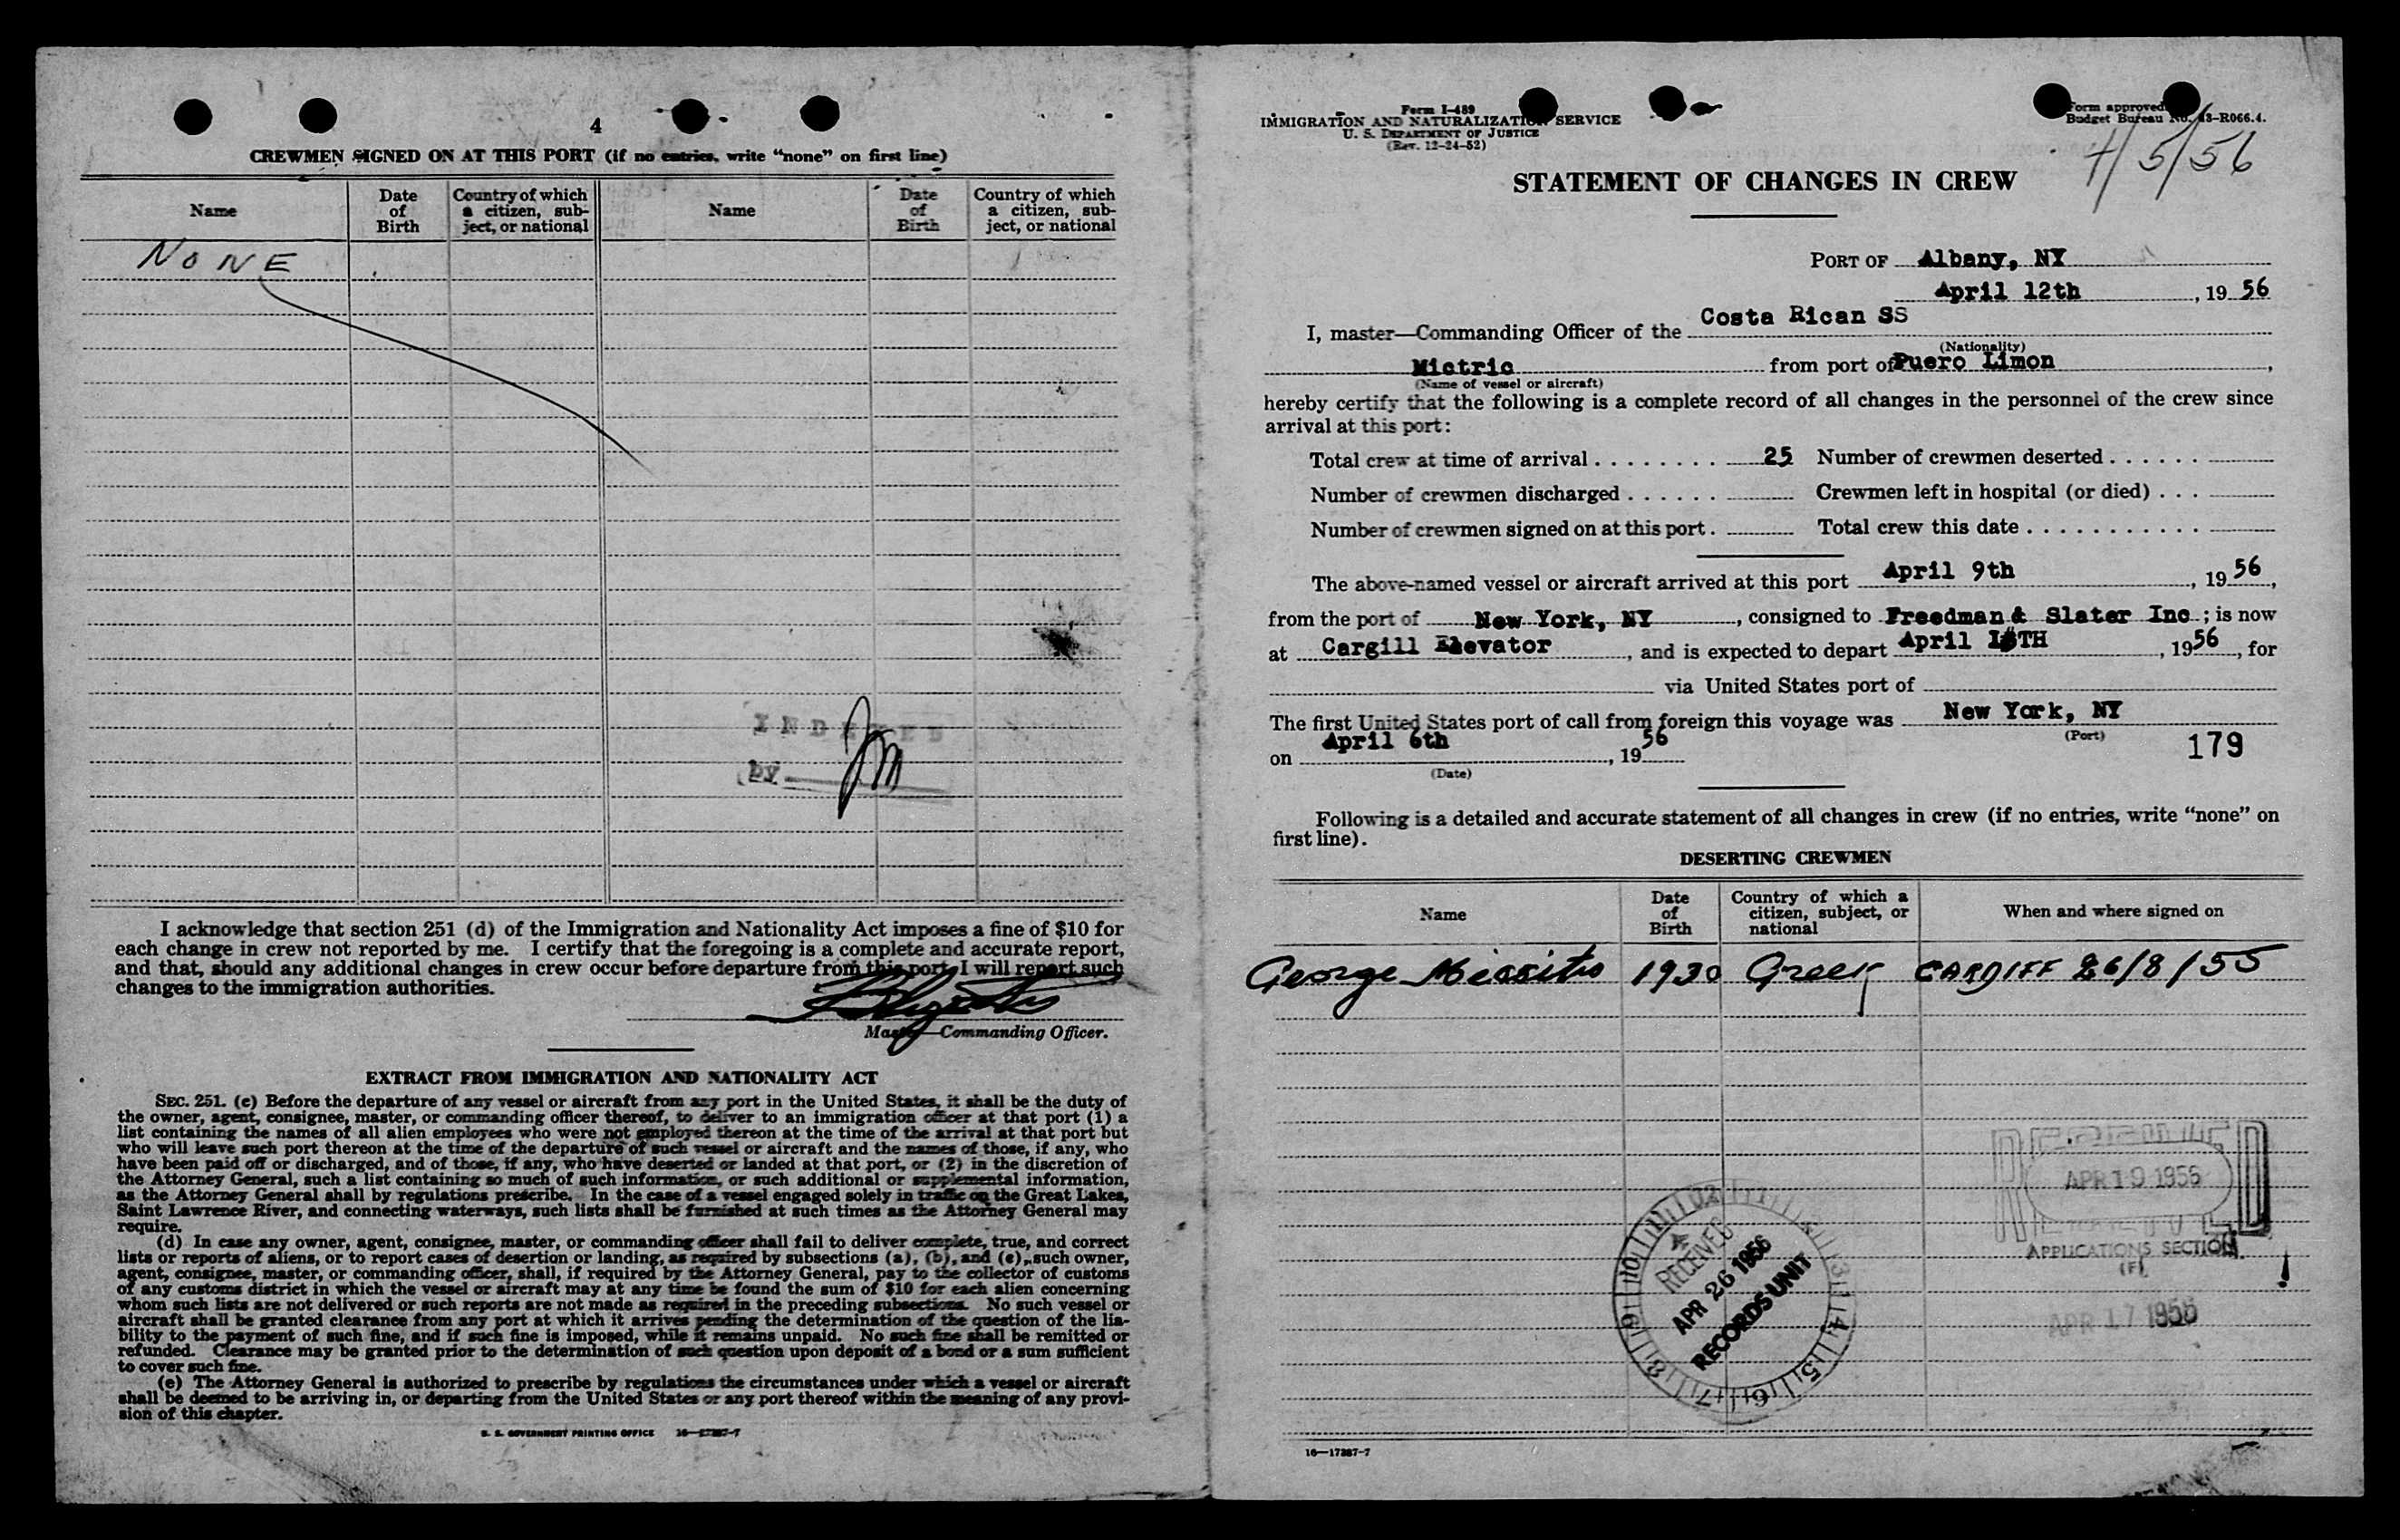 4
CREWMEN SIGNED ON AT THIS PORT (if no entries, write "none" on first line)
Name
Date of Birth
Country of which a citizen, sub-ject, or national
Name
Date of Birth
Country of which a citizen, sub-ject, or national
NONE
INDEXED
by
I acknowledge that section 251 (d) of the Immigration and Nationality Act imposes a fine of $10 for
each change in crew not reported by me. I certify that the foregoing is a complete and accurate report,
and that, should any additional changes in crew occur before departure from this port, I will report such
changes to the immigration authorities.
Master—Commanding Officer.
EXTRACT FROM IMMIGRATION AND NATIONALITY ACT
SEC. 251. (c) Before the departure of any vessel or aircraft from any port in the United States, it shall be the duty of
the owner, agent, consignee, master, or commanding officer thereof, to deliver to an immigration officer at that port (1) a
list containing the names of all alien employees who were not employed thereon at the time of the arrival at that port but
who will leave such port thereon at the time of the departure of such vessel or aircraft and the names of those, if any, who
have been paid off or discharged, and of those, if any, who have deserted or landed at that port, or (2) in the discretion of
the Attorney General, such a list containing so much of such information, or such additional or supplemental information,
as the Attorney General shall by regulations prescribe. In the case of a vessel engaged solely in traffic on the Great Lakes,
Saint Lawrence River, and connecting waterways, such lists shall be furnished at such times as the Attorney General may
require.
(d) In case any owner, agent, consignee, master, or commanding officer shall fail to deliver complete, true, and correct
lists or reports of aliens, or to report cases of desertion or landing, as required by subsections (a), (b), and (c), such owner,
agent, consignee, master, or commanding officer, shall, if required by the Attorney General, pay to the collector of customs
of any customs district in which the vessel or aircraft may at any time be found the sum of $10 for each alien concerning
whom such lists are not delivered or such reports are not made as required in the preceding subsections. No such vessel or
aircraft shall be granted clearance from any port at which it arrives pending the determination of the question of the lia-
bility to the payment of such fine, and if such fine is imposed, while it remains unpaid. No such fine shall be remitted or
refunded. Clearance may be granted prior to the determination of such question upon deposit of a bond or a sum sufficient
to cover such fine.
(e) The Attorney General is authorized to prescribe by regulations the circumstances under which a vessel or aircraft
shall be deemed to be arriving in, or departing from the United States or any port thereof within the meaning of any provi-
sion of this chapter.
U. S. GOVERNMENT PRINTING OFFICE 16—17387-7
Form I-489
IMMIGRATION AND NATURALIZATION SERVICE
U. S. DEPARTMENT OF JUSTICE
(Rev. 12-24-52)
Form approved
Budget Bureau No. 43-R066.4.
4/5/56
STATEMENT OF CHANGES IN CREW
PORT OF Albany, NY
April 12th, 1956
I, master—Commanding Officer of the Costa Rican SS
(Nationality)
Mictric from port of Puero Limon,
(Name of vessel or aircraft)
hereby certify that the following is a complete record of all changes in the personnel of the crew since
arrival at this port:
Total crew at time of arrival ........ 25 Number of crewmen deserted ......
Number of crewmen discharged ...... Crewmen left in hospital (or died) ...
Number of crewmen signed on at this port. Total crew this date ...........
The above-named vessel or aircraft arrived at this port April 9th, 1956,
from the port of New York, NY, consigned to Freedman & Slater Inc; is now
at Cargill Elevator, and is expected to depart April TH, 1956, for
via United States port of
The first United States port of call from foreign this voyage was New York, NY
(Port)
on April 6th, 1956
(Date)
179
Following is a detailed and accurate statement of all changes in crew (if no entries, write "none" on
first line).
DESERTING CREWMEN
Name
Date of Birth
Country of which a citizen, subject, or national
When and where signed on
George 1930 Greek CARDIFF 26/8/55
RECEIVED
APR 19 1956
APPLICATIONS SECTION
(F)
RECEIVED
APR 26 1956
RECORDS UNIT
APR 17 1956
16—17387-7